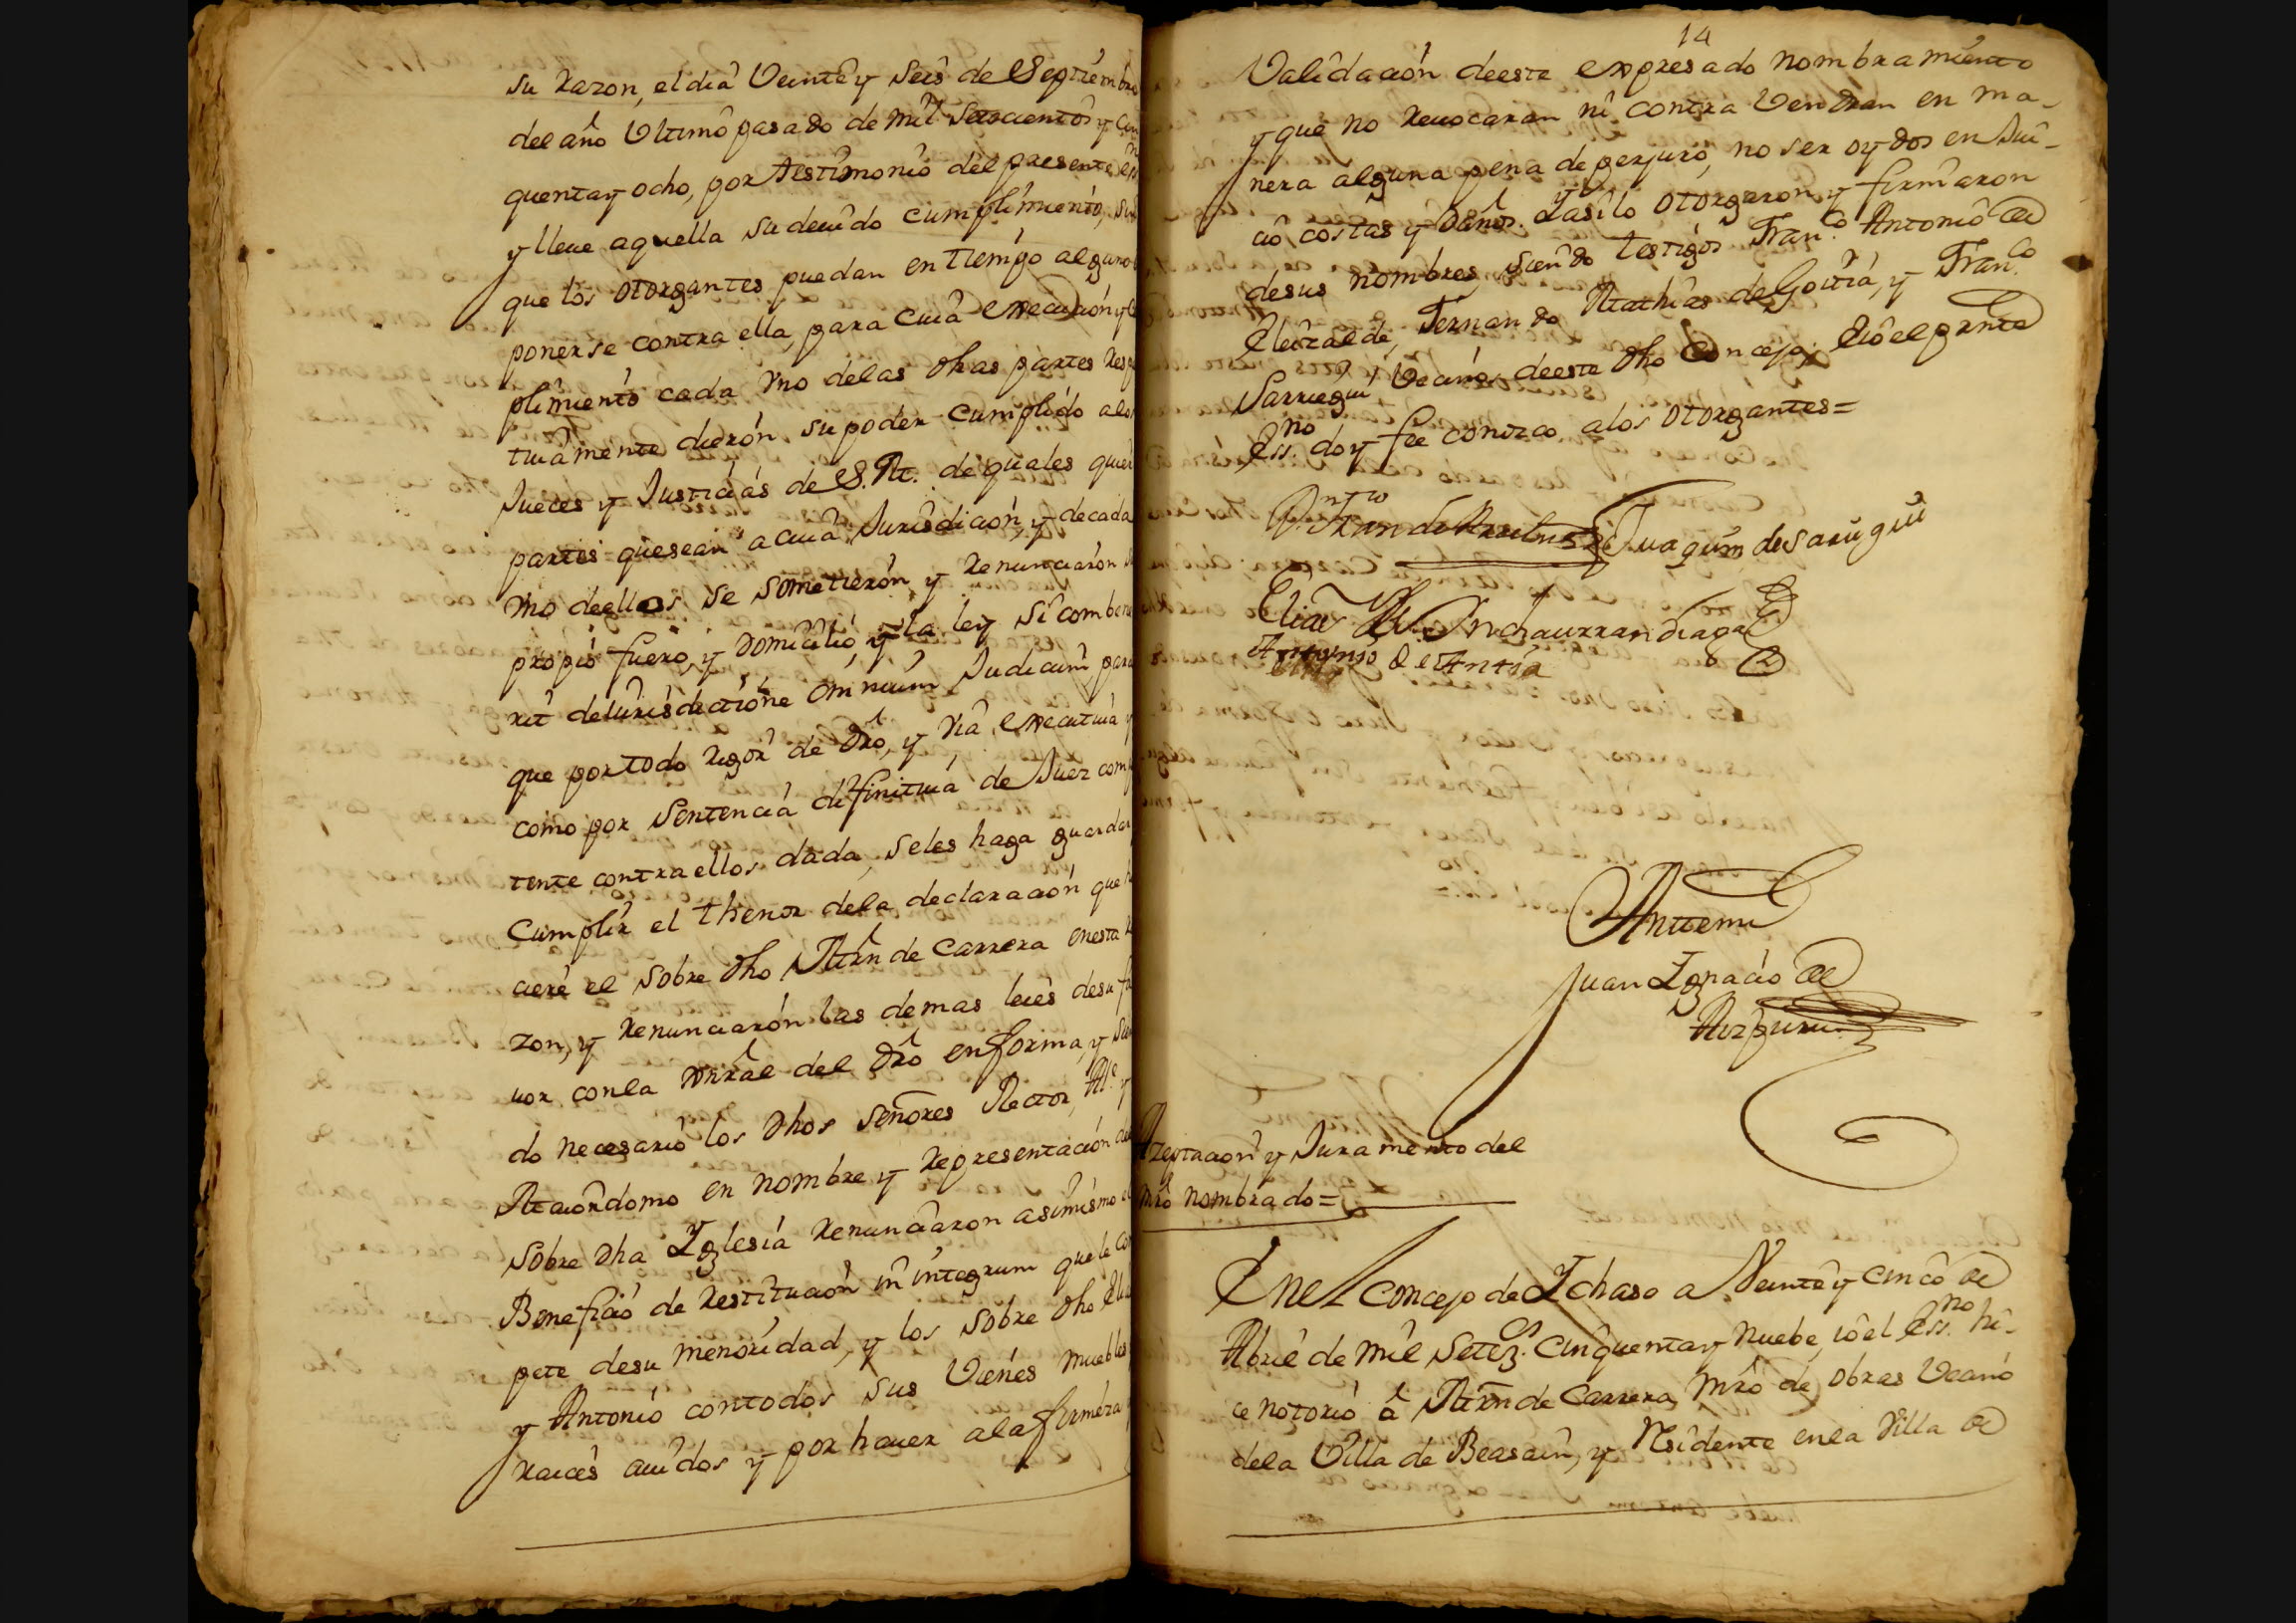 su razon, el dia Veinte y seis de Septiembre
del año Ultimo pasado de mil setecientos y Cin
quenta y ocho, por testimonio del presente ess
y lleue aquella su deuido cumplimiento, sin
que los otorgantes puedan en tiempo alguno o
ponerse contra ella, para cuia execucion y c
plimiento cada Vno de las dhas partes resp
tiuamente dieron su poder cumplido alos
Jueces y Justicias de S. M. de quales quier
partes que sean a cuia Jurisdicion, y de cada
Vno de ellos se sometieron y renunciaron s
propio fuero, y domicilio, y la ley si combene
rit de Jurisdictione omnium Judicum, para
que por todo rigor de dro, y via executiua y
como por sentencia difinitiua de Juez comp
tente contra ellos dada, seles haga guardar
Cumplir el thenor dela declaracion que h
ciere el sobre dho Mrn de Carrera en esta r
zon, y renunciaron las demas leies de su fa
uor con la gnral del dro en forma, y sien
do necesario los dhos señores Rector, Alc y
Maiordomo en nombre y representacion de
sobre dha Yglesia renunciaron asimismo el
Beneficio de restitucion in integrum que le com
pete de su menoridad, y los sobre dho Eli
y Antonio con todos sus Vienes muebles
raices auidos y por hauer a la firmeza y
14
Validacion de este expresado nombramiento
y que no reuocaran ni contra Vendran en ma-
nera alguna pena de perjuro, no ser oydos en Jui-
cio costas y daños. Y asi lo otorgaron y firmaron
de sus nombres, siendo testigos Franco Antonio de
Eleizalde, Fernando Mathias de Goitia, y Franco
Sarriegui Vecinos de este dho Concejo, E io el prnte
Essno doy fee conozco a los otorgantes=
Juaquin de Sariigui
Elias de Inchaurrandiaga
Antonio de Antia
Antemi
Juan Ygnacio de
Aizpuru
Azeptacion y Juramento del
mro nombrado=
En el Concejo de Ychaso a Veinte y cinco de
Abril de mil setez.s Cinquenta y nuebe, io el Essno hi-
ce notorio a Mrn de Carrera, Mro de obras Vecino
de la Villa de Beasain, y Residente en la Villa de